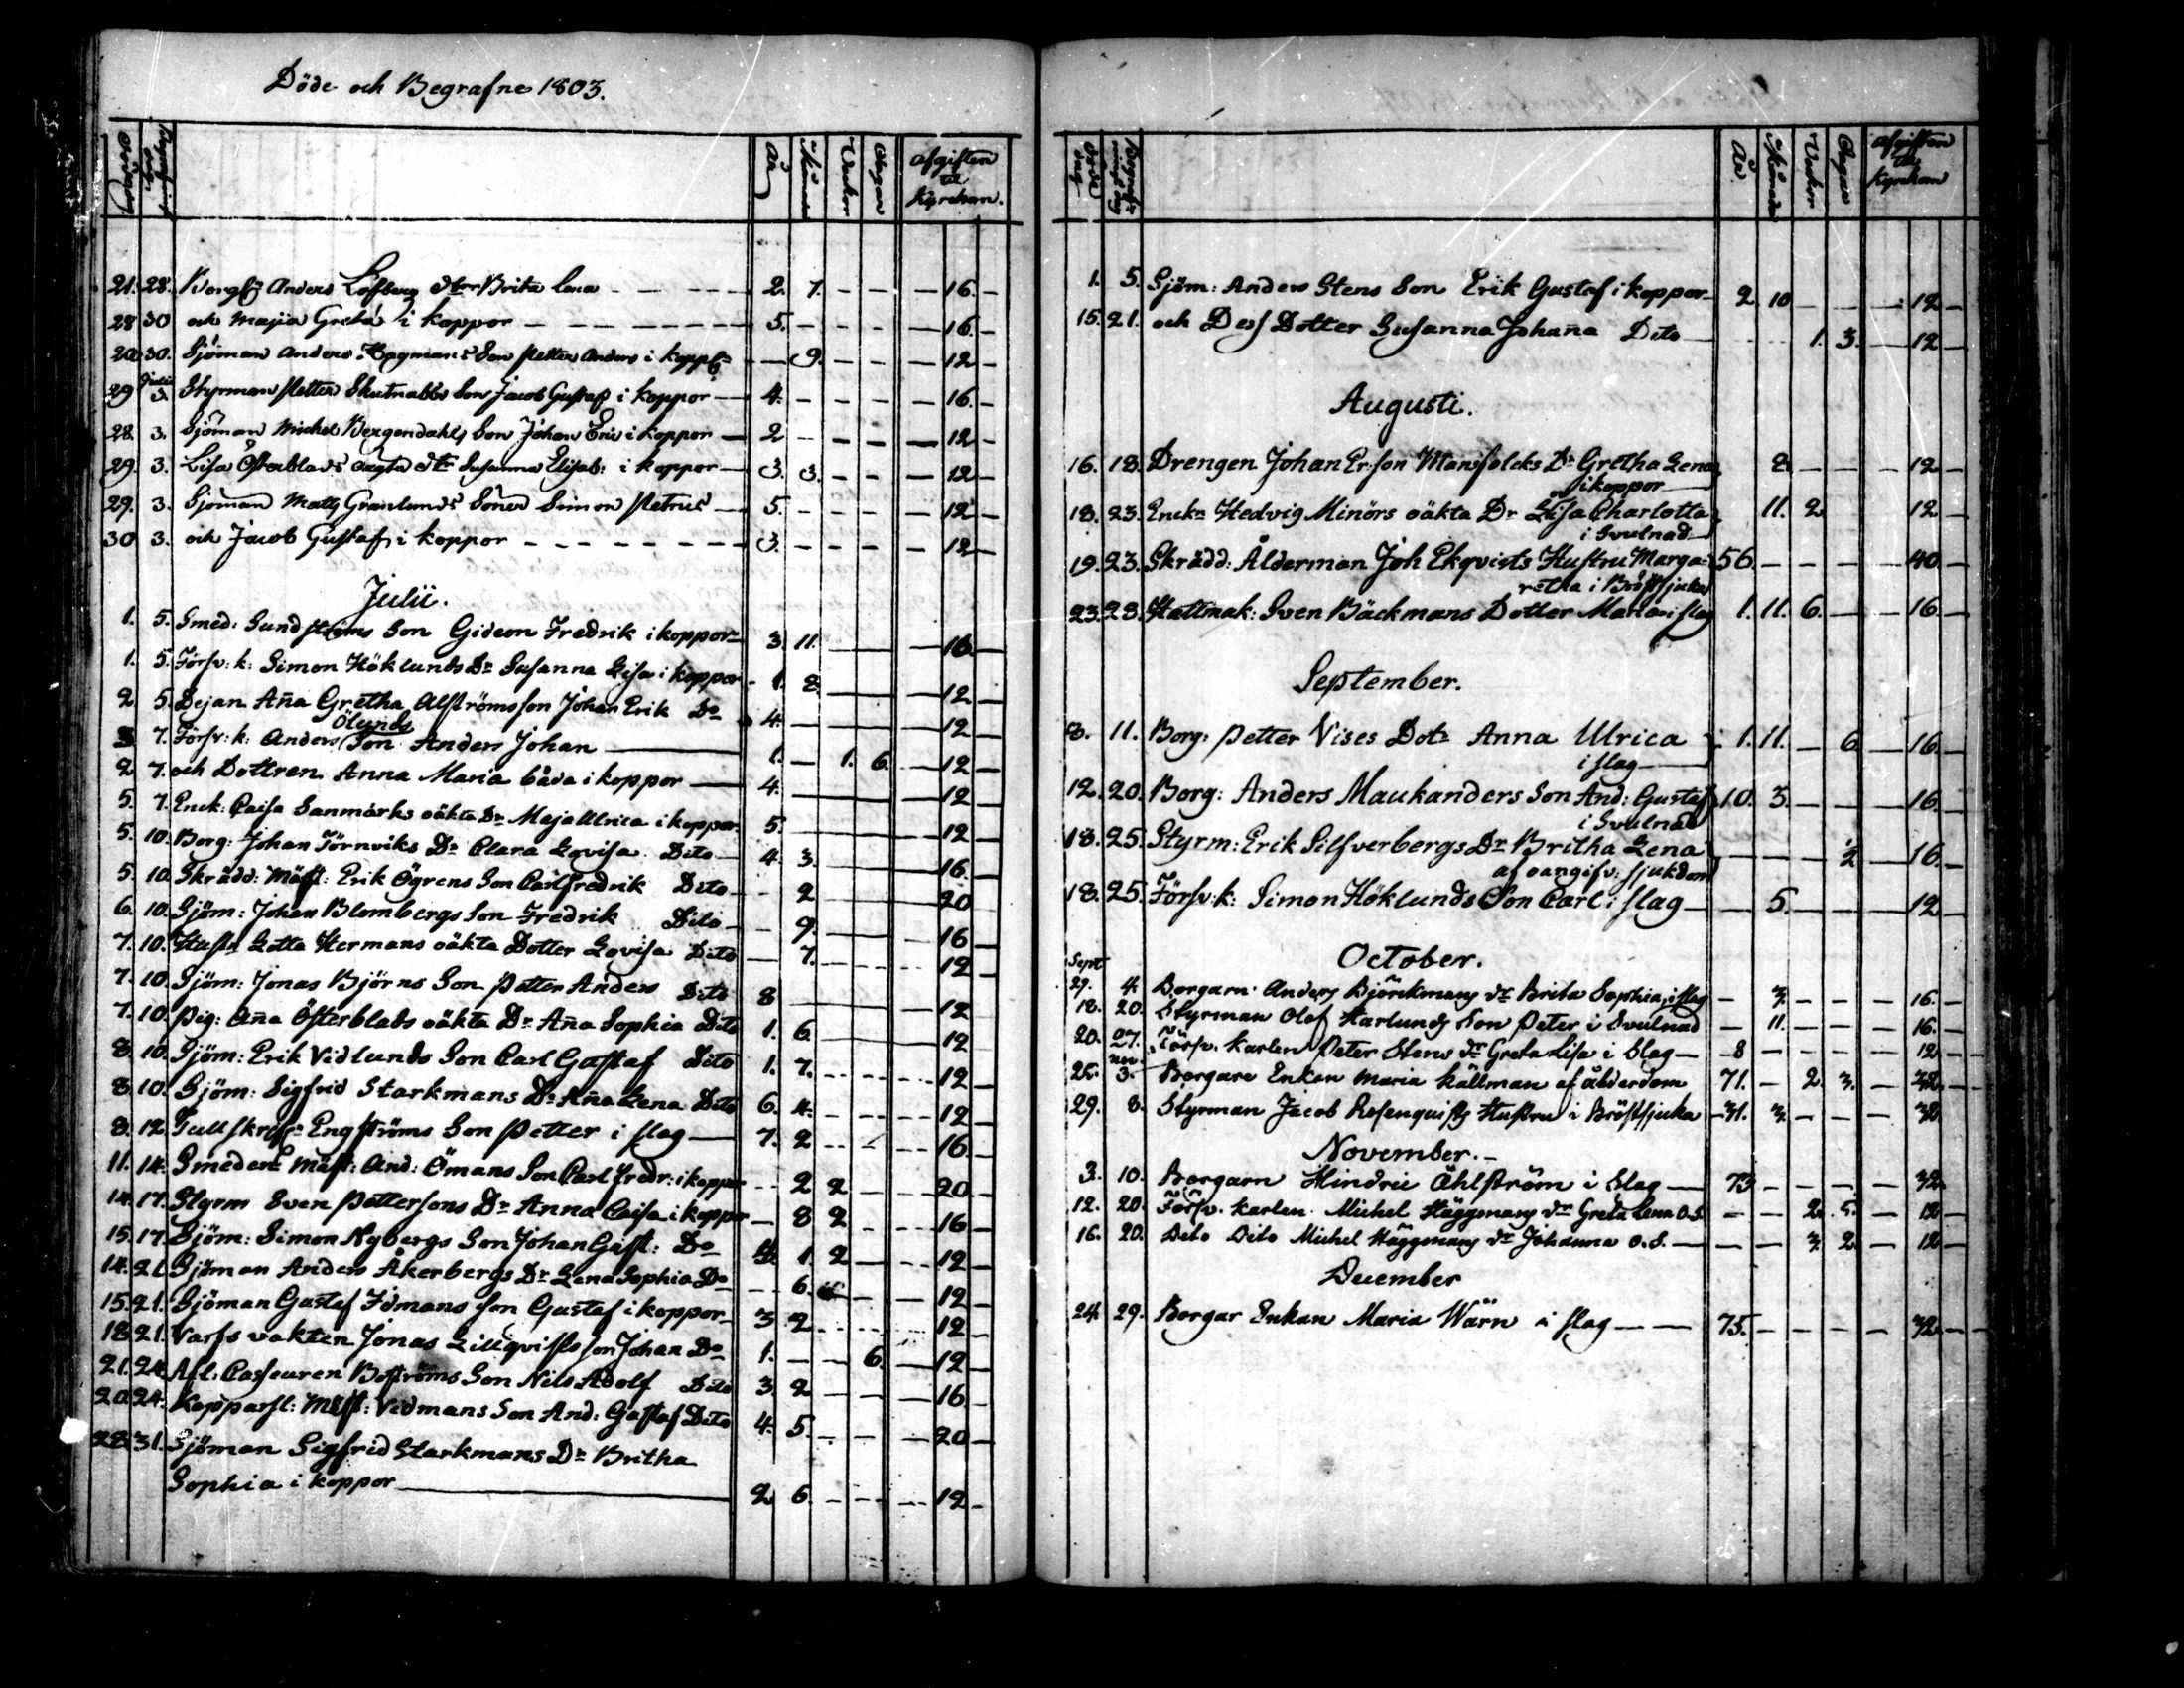 Döde och Begrafne 1803.
År Månader Veckor Dagar afgiften til Kyrckan.
21. 28. Borg: Anders Löfberg dtr Brita Lena 2. 7. 16.
28 30 och Maja Greta i koppor 5. 16.
20 30. Sjöman Anders Hagmans Son Petter Anders i kopp: 9. 12
29 Julii 3. Styrman Petter Skutnabbs Son Jacob Gustaf i koppor 4. 16.
28. 3. Sjöman Michel Bergendahls Son Johan Eric i koppor 2 12
29. 3. Lisa Österblads oägta dtr Susanna Elisab: i koppor 3. 3. 12
29. 3. Sjöman Matts Granlunds Söner Simon Petrus 5. 12
30 3. och Jacob Gustaf i koppor 3. 12
Julii.
1. 5. Smed: Sundströms Son Gideon Fredrik i koppor 3. 11. 16.
1. 5. Försv: k: Simon Höklunds Dr Susanna Lisa i koppor 1. 8. 12
2 5. Pejan Aña Gretha Alströms son Johan Erik Do 4. 12
Ölunds
3 7. Försv: k: Anders Son Anders Johan 1. 1. 6. 12
2 7. och Dottren Anna Maria båda i koppor 4. 12
5. 7. Enck: Caisa Sanmarks oäkta Dr Maja Ulrica i koppor 5. 12
5. 10. Borg: Johan Törnviks Dr Clara Lovisa Dito 4. 3. 16.
5. 10. Skrädd: Mäst: Erik Ögrens Son Carl Fredrik Dito 2 20
6. 10. Sjöm: Johan Blombergs Son Fredrik Dito 9. 16
7. 10. Hustr Lotta Hermans oäkta Dotter Lovisa Dito 7. 12
7. 10. Sjöm: Jonas Björns Son Petter Anders Dito 8 12
7. 10. Pig: Aña Österblads oäkta Dr Aña Sophia Dito 1. 6. 12
8. 10. Sjöm: Erik Vidlunds Son Carl Gustaf Dito 1. 7. 12
8. 10. Sjöm: Sigfrid Starkmans Dr Aña Lena Dito 6. 4. 12
8. 12. Tullskrif: Engströms Son Petter i slag 7. 2 16.
11. 14. Smeden Mäst: And: Ömans Son Carl Fredr: i koppor 2 2 20
14. 17. Styrm Sven Pettersons Dr Anna Caisa i koppor 8 2 16
15. 17. Sjöm: Simon Nybergs Son Johan Gust: Do 1. 2 12
14. 21. Sjöman Anders Åkerbergs Dr Lena Sophia Do 6. 12
15. 21. Sjöman Gustaf Idmans son Gustaf i koppor 3 2 12
18. 21. Varfs vakten Jonas Lillqvists son Johan Do 1. 6. 12
21. 24. Afl: Casseuren Boströms Son Nils Adolf Dito 3. 2 16
20. 24. Kopparsl: Mäst: Vidmans Son And: Gustaf Dito 4. 5. 20
28. 31. Sjöman Sigfrid Starkmans Dr Britha
Sophia i koppor 2 6. 12
År Månader Veckor Dagar afgiften til Kyrckan
1. 5. Sjöm: Anders Stens Son Erik Gustaf i koppor 2 10 12
15. 21. och Dess Dotter Susanna Johaña Dito 1. 3. 12
Augusti.
16. 18. Drengen Johan Erson Mansfolcks Dr Gretha Lena 8. 12
i koppor
18. 23. Enckn Hedvig Minörs oäkta Dr Lisa Charlotta 11. 2 12
i Svulnad
19. 23. Skrädd: Ålderman Joh Ekqvists Hustru Marga- 56. 40.
retha i Bröstsjuka
23. 28. Hattmak: Sven Bäckmans Dotter Maria i slag 1. 11. 6. 16.
September.
8. 11. Borg: Petter Vises Dotr Anna Ulrica 1. 11. 6 16.
i slag
12. 20. Borg: Anders Maukanders Son And: Gustaf 10. 3. 16.
i Svulnad
18. 25. Styrm: Erik Silfverbergs Dr Britha Lena ½ 16.
af oangifv: sjukdom
18. 25. Försv: k: Simon Höklunds Son Carl i slag 5. 12
October.
Sept
29. 4. Borgarn Anders Björckmans dr Brita Sophia, i slag 3. 16.
18. 20. Styrman Olof Harlunds Son Peter i Svulnad 11. 16.
20. 27. Försv. karlen Peter Stens dr Greta Lisa i Slag 8 12
nov.
25. 3. Borgare Enkan Maria Källman af ålderdom 71. 2. 3. 32
29. 8. Styrman Jacob Rosenquists Hustru i Bröstsjuka 31. 3. 32
November.
3. 10. Borgarn Hindric Åhlström i Slag 73 32
12. 20. Försv. karlen Michel Häggmans dr Greta Lena O.S. 2. 5. 12
16. 20. Dito Dito Michel Häggmans dr Johanna O.S. 3. 2. 12
December
24. 29. Borgar Enkan Maria Wärn i slag 75. 32